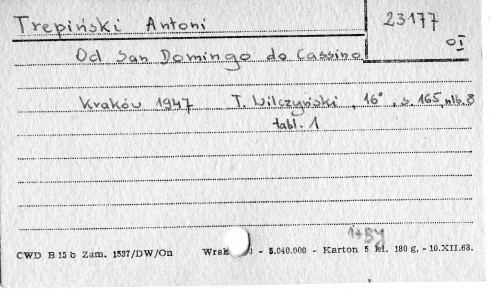 Trepiński Antoni
23177
OI
Od San Domingo do Cassino
Kraków 1947 T. Wilczyński, 16°, s. 165, nlb. 8
tabl. 1
1+By
CWD B 15 b Zam. 1537/DW/On - 5.040.000 - Karton 5 kl. 180 g. - 10.XII.63.